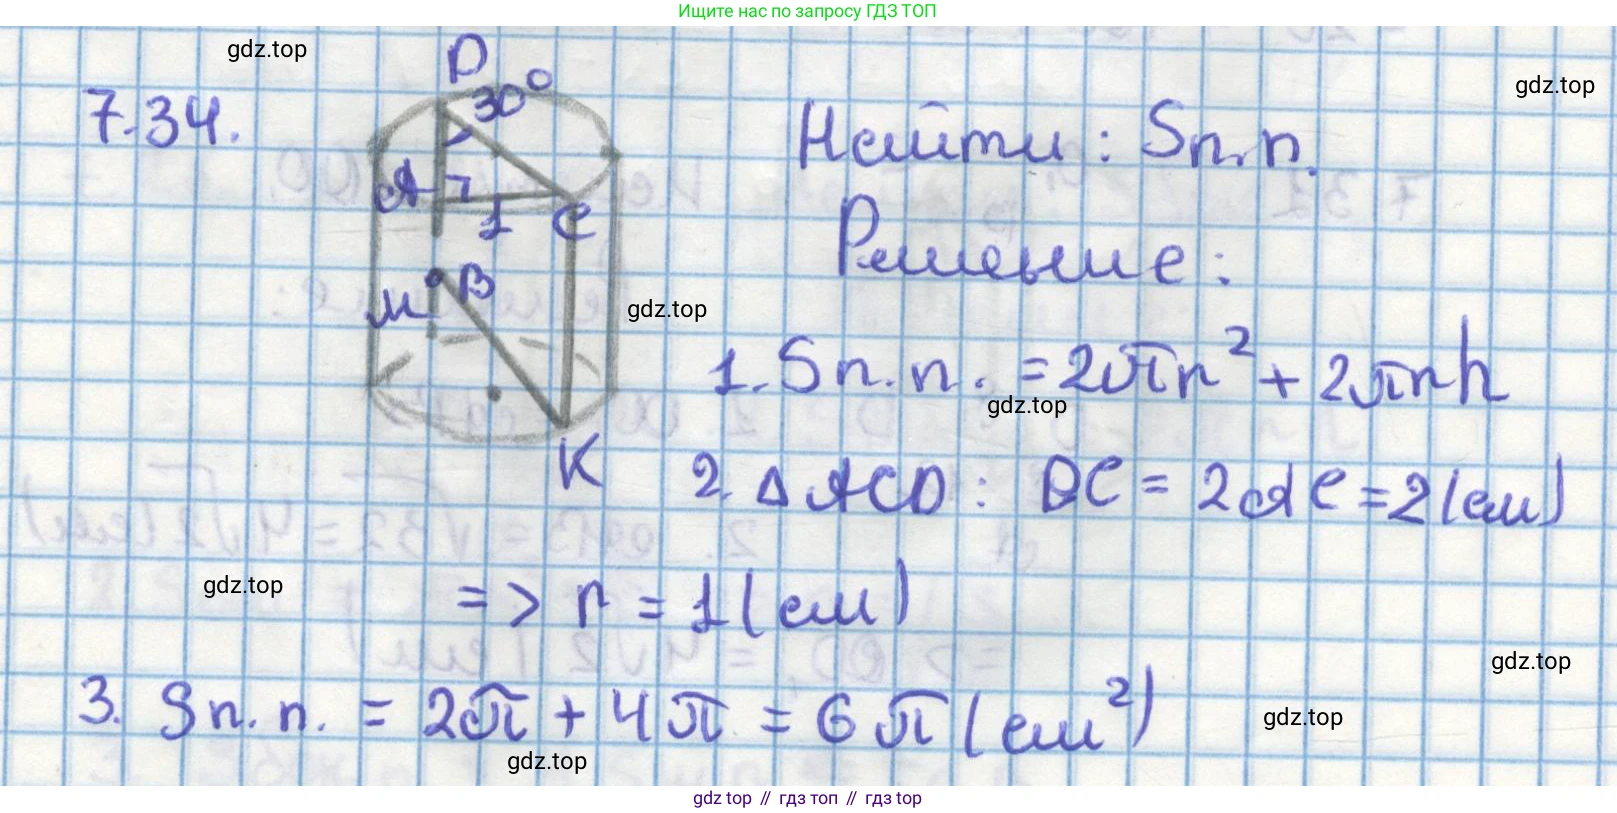 Ищите нас по запросу ГДЗ ТОП
gdz.top
gdz.top
7.34.
D
30°
A
1
C
M
B
K
Найти: Sп.п.
Решение:
gdz.top
1. Sп.п. = 2πr² + 2πrh
gdz.top
2. Δ ACD: DC = 2AC = 2(см)
gdz.top
=> r = 1(см)
gdz.top
3. Sп.п. = 2π + 4π = 6π(см²)
gdz.top
gdz.top
gdz top // гдз топ // гдз top